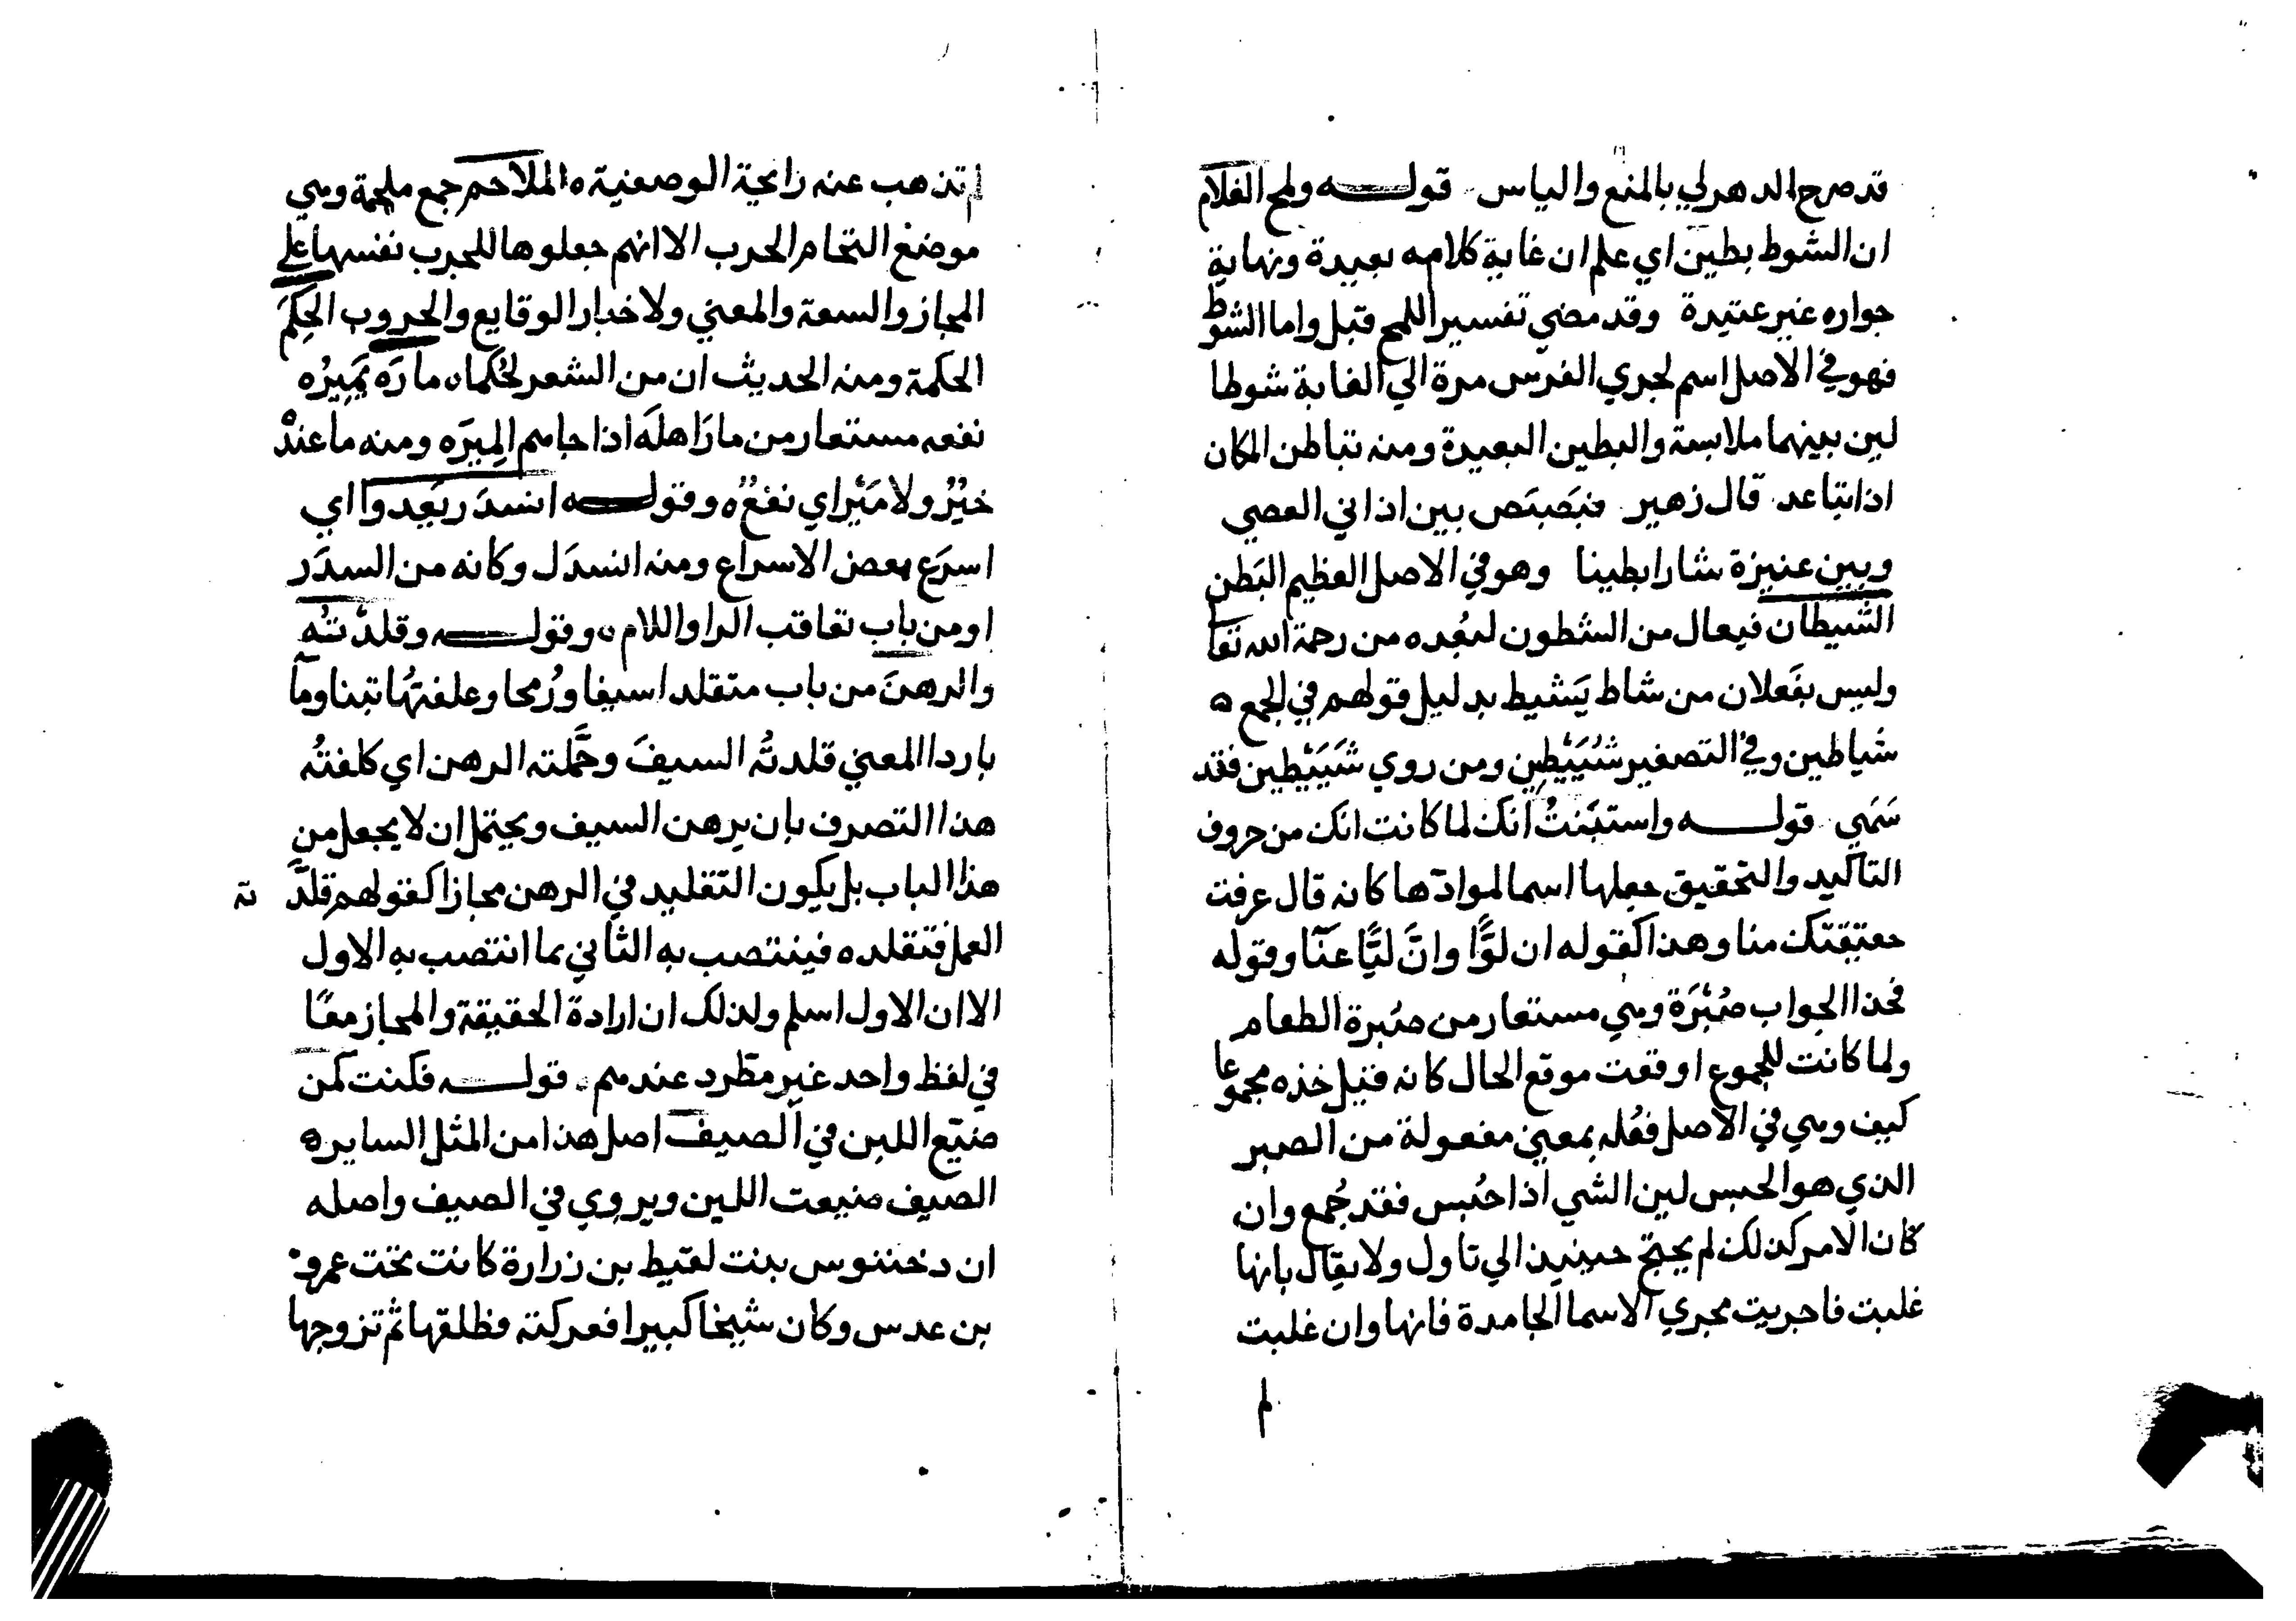 قد صرح الدهر لي بالمنع والياس قولـــه ولمح الغلام
ان الشوط بطين اي علم ان غاية كلامه بعيدة ونهاية
جواره غير عتيدة وقد مضي تفسير اللمح قبل واما الشوط
فهو في الاصل اسم لجري الفرس مرة الي الغاية شوطا
لين بينهما ملابسة والبطين البعيدة ومنه تباطن المكان
اذا تباعد قال زهير فبصبص بين اداني الغضي
وبين عنيزة شارا بطينا وهو في الاصل العظيم البَطن
الشيطان فيعال من الشطون لبُعده من رحمة الله تعا
وليس بفَعلان من شاط يَشيط بدليل قولهم في الجمع ه
شياطين وفي التصغير شُيَيْطِين ومن روي شَيَيْطين فقد
سَمَي قولـــه واستبَنتُ انك لما كانت انك من حروف
التاكيد والتحقيق جعلها اسما لموادّها كانه قال عرفت
حقيقتك منا وهذا كقوله ان لوًّا وانَّ ليًّا عَنّا وقوله
فخذ الجواب صُبْرَة وهي مستعار من صُبرة الطعام
ولما كانت للمجموع او وقعت موقع الحال كانه قيل خذه مجموعا
كيف وهي في الاصل فُعْله بمعني مفعولة من الصبر
الذي هو الحبس لين الشي اذا حُبس فقد جُمع وان
كان الامر كذلك لم يحتج حينيذ الي تاول ولا يقال بانها
غلبت فاجريت مجري الاسما الجامدة فانها وان غلبت
لم
لم تذهب عنه رايحة الوصفية ه الملاحم جمع ملحمة وهي
موضع التحام الحرب الا انهم جعلوها للحرب نفسها علي
المجاز والسعة والمعني ولاخبار الوقايع والحروب الحِكَمَ
الحكمة ومنه الحديث ان من الشعر لحُكما ه مارَه يَمِيرُه
نفعه مستعار من مارَ اهلَه اذا جاهم الميِرَه ومنه ما عندْ
خَيْرُ ولا مَيْر اي نفعٌ ه وقولـــه انسدَر يَعِدوا اي
اسرَع بعض الاسراع ومنه انسدَل وكانه من السدَر
او من باب تعاقب الرا واللام ه وقولـــه وقلدْتُه
والرهنَ من باب متقلدا سيفا ورُمحا وعلفتُها تبنا ومآ
باردا المعني قلدتُه السيفَ وحَّملته الرهن اي كلفتُه
هذا التصرف بان يرهن السيف ويحتمل ان لا يجعل من
هذا الباب بل يكون التقليد في الرهن مجازا كقولهم قلدَّ ته
العمل فتقلده فينتصب به الثاني بما انتصب به الاول
الا ان الاول اسلم ولذلك ان ارادة الحقيقة والمجاز معًا
في لفظ واحد غير مطّرد عندهم قولـــه فكنت كمن
ضيّع اللبن في الصيف اصل هذا من المثل السايره
الصيف ضيعت اللبن ويروي في الصيف واصله
ان دختنوس بنت لقيط بن زرارة كانت تحت عمرو
بن عدس وكان شيخا كبيرا فعركته فطلقها ثم تزوجها